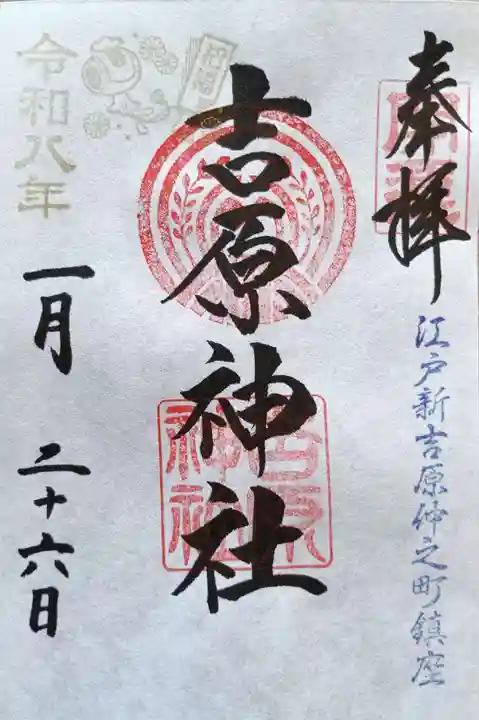 奉拝
江戸新吉原仲之町鎮座
吉原神社
吉原
神社
令和八年
一月 二十六日